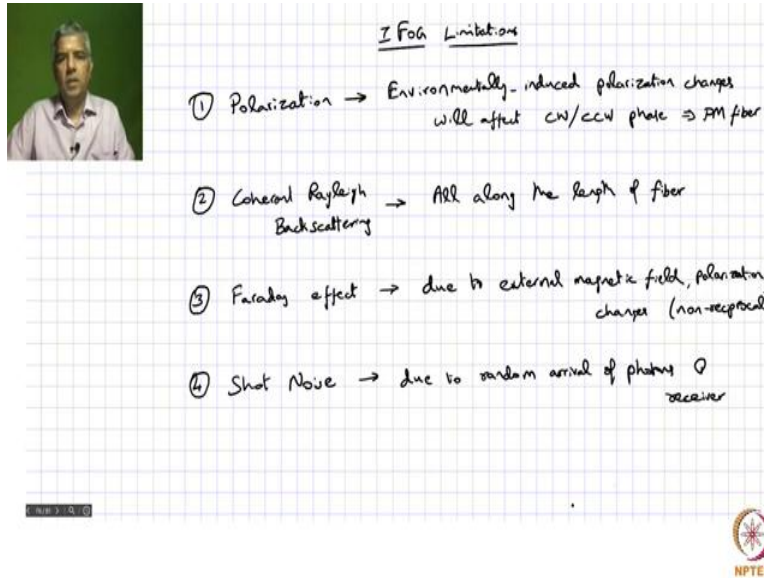 I FOG Limitations
① Polarization → Environmentally-induced polarization changes
will affect CW/CCW phase ⇒ PM fiber
② Coherent Rayleigh → All along the length of fiber
Backscattering
③ Faraday effect → due to external magnetic field, polarization
changes (non-reciprocal
④ Shot Noise → due to random arrival of photons @
receiver
NPTE